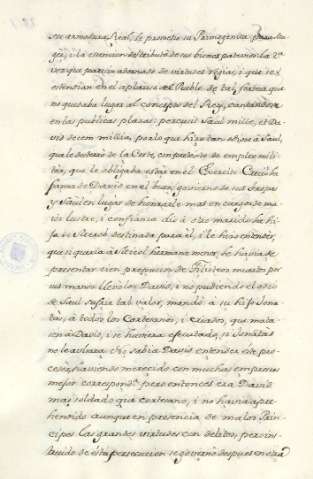 su armadura Real, le prometio su Primogenita, para su
ger, i la exencion de tributo de sus bienes patrimonia
ver que parecian adornado de virtudes regias, i que se ex
extendian en el aplauso del Pueblo de tal forma que
no quedaba lugar al concepto del Rey, cantandose
en las publicas plazas: percusit Saul mille, et Da
vid decem millia, por lo que hizo tan odioso a Saul,
que le desterró de la Corte, con pretexto de empleo mili
tar, que le obligaba estar en el Exercito. Crecio la
fama de David en el buen govierno de sus tropas
y Saul en lugar de honrarle mas con cargos de ma
ior lustre, i confianza dió à otro marido la hi
ja destinada para él, i le hizo entender,
que si queria à Micol hermana menor, le havia de
presentar cien prepucios de Filisteos muertos por
sus manos llevolos David, i no pudiendo el odio
de Saul sufrir tal valor, mandó a su hijo Jona
tàs, à todos los Cortesanos, i criados, que mata
sen à David, i se huviera efectuado, si Jonatàs
no le avisara. No sabia David entender este pro
ceder, haviendo merecido con muchas empresas
mejor correspond.ª pero entonces era David
mas soldado que cortesano, i no havia apre
hendido aunque en presencia de malos Prin
cipes las grandes virtudes son delitos, pero ins
truido de esta persecucion se governò despues en otra